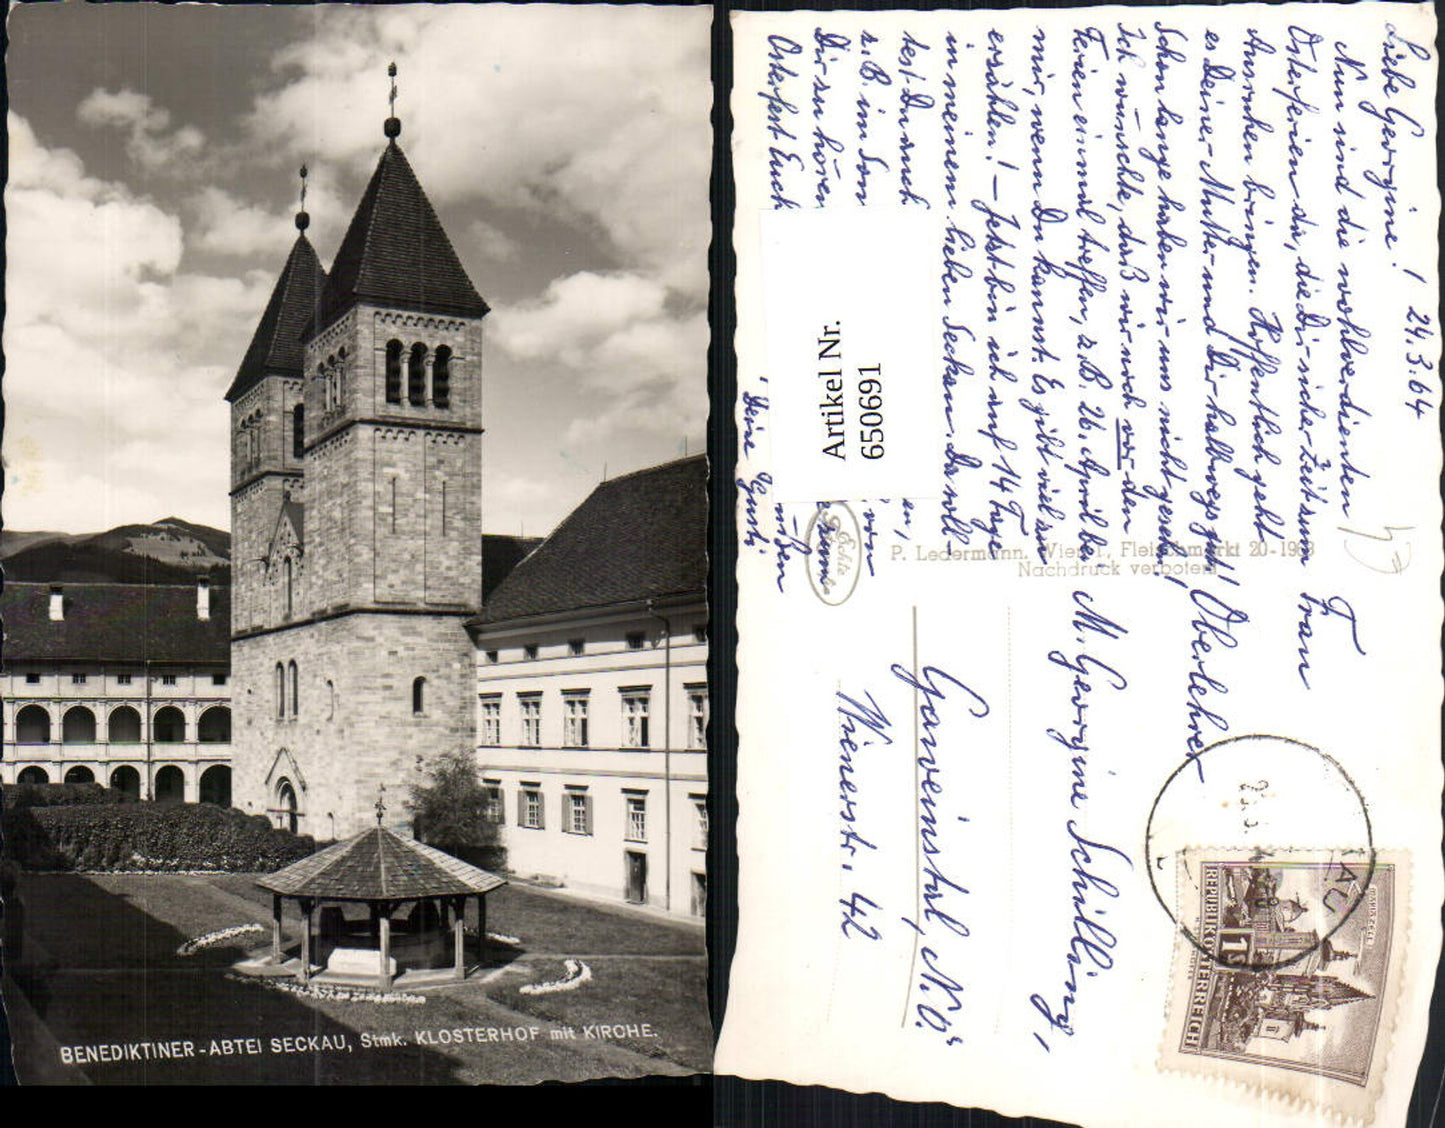 BENEDIKTINER-ABTEI SECKAU, Stmk. KLOSTERHOF mit KIRCHE.
24.3.64
Liebe Georgine!
Nun sind die wohlverdienten
Osterferien da, die Dir sicher Zeit zum
Ausruhen bringen. Hoffentlich geht
es Deiner Mutter und Dir halbwegs gut!
Schon lange haben wir uns nicht gesehn!
Ich wünschte, daß wir uns noch vor den
Ferien einmal treffen, z.B. 26. April bei
mir, wenn Du kannst. Es gibt viel zu
erzählen! – Jetzt bin ich auf 14 Tage
in meinem lieben Seckau. Da soll-
test Du auch
z.B. im Som en,
Dir zu hören von
Osterfest Euch
Deine Gusti
Artikel Nr.
650691
P. Ledermann, Wien I., Fleischmarkt 20-1963
Nachdruck verboten!
Echte
Frau
Oberlehrer
M. Georgine Schilling,
Gaweinstal, N.Ö.
Wienerstr. 42
REPUBLIK ÖSTERREICH
MARIAZELL